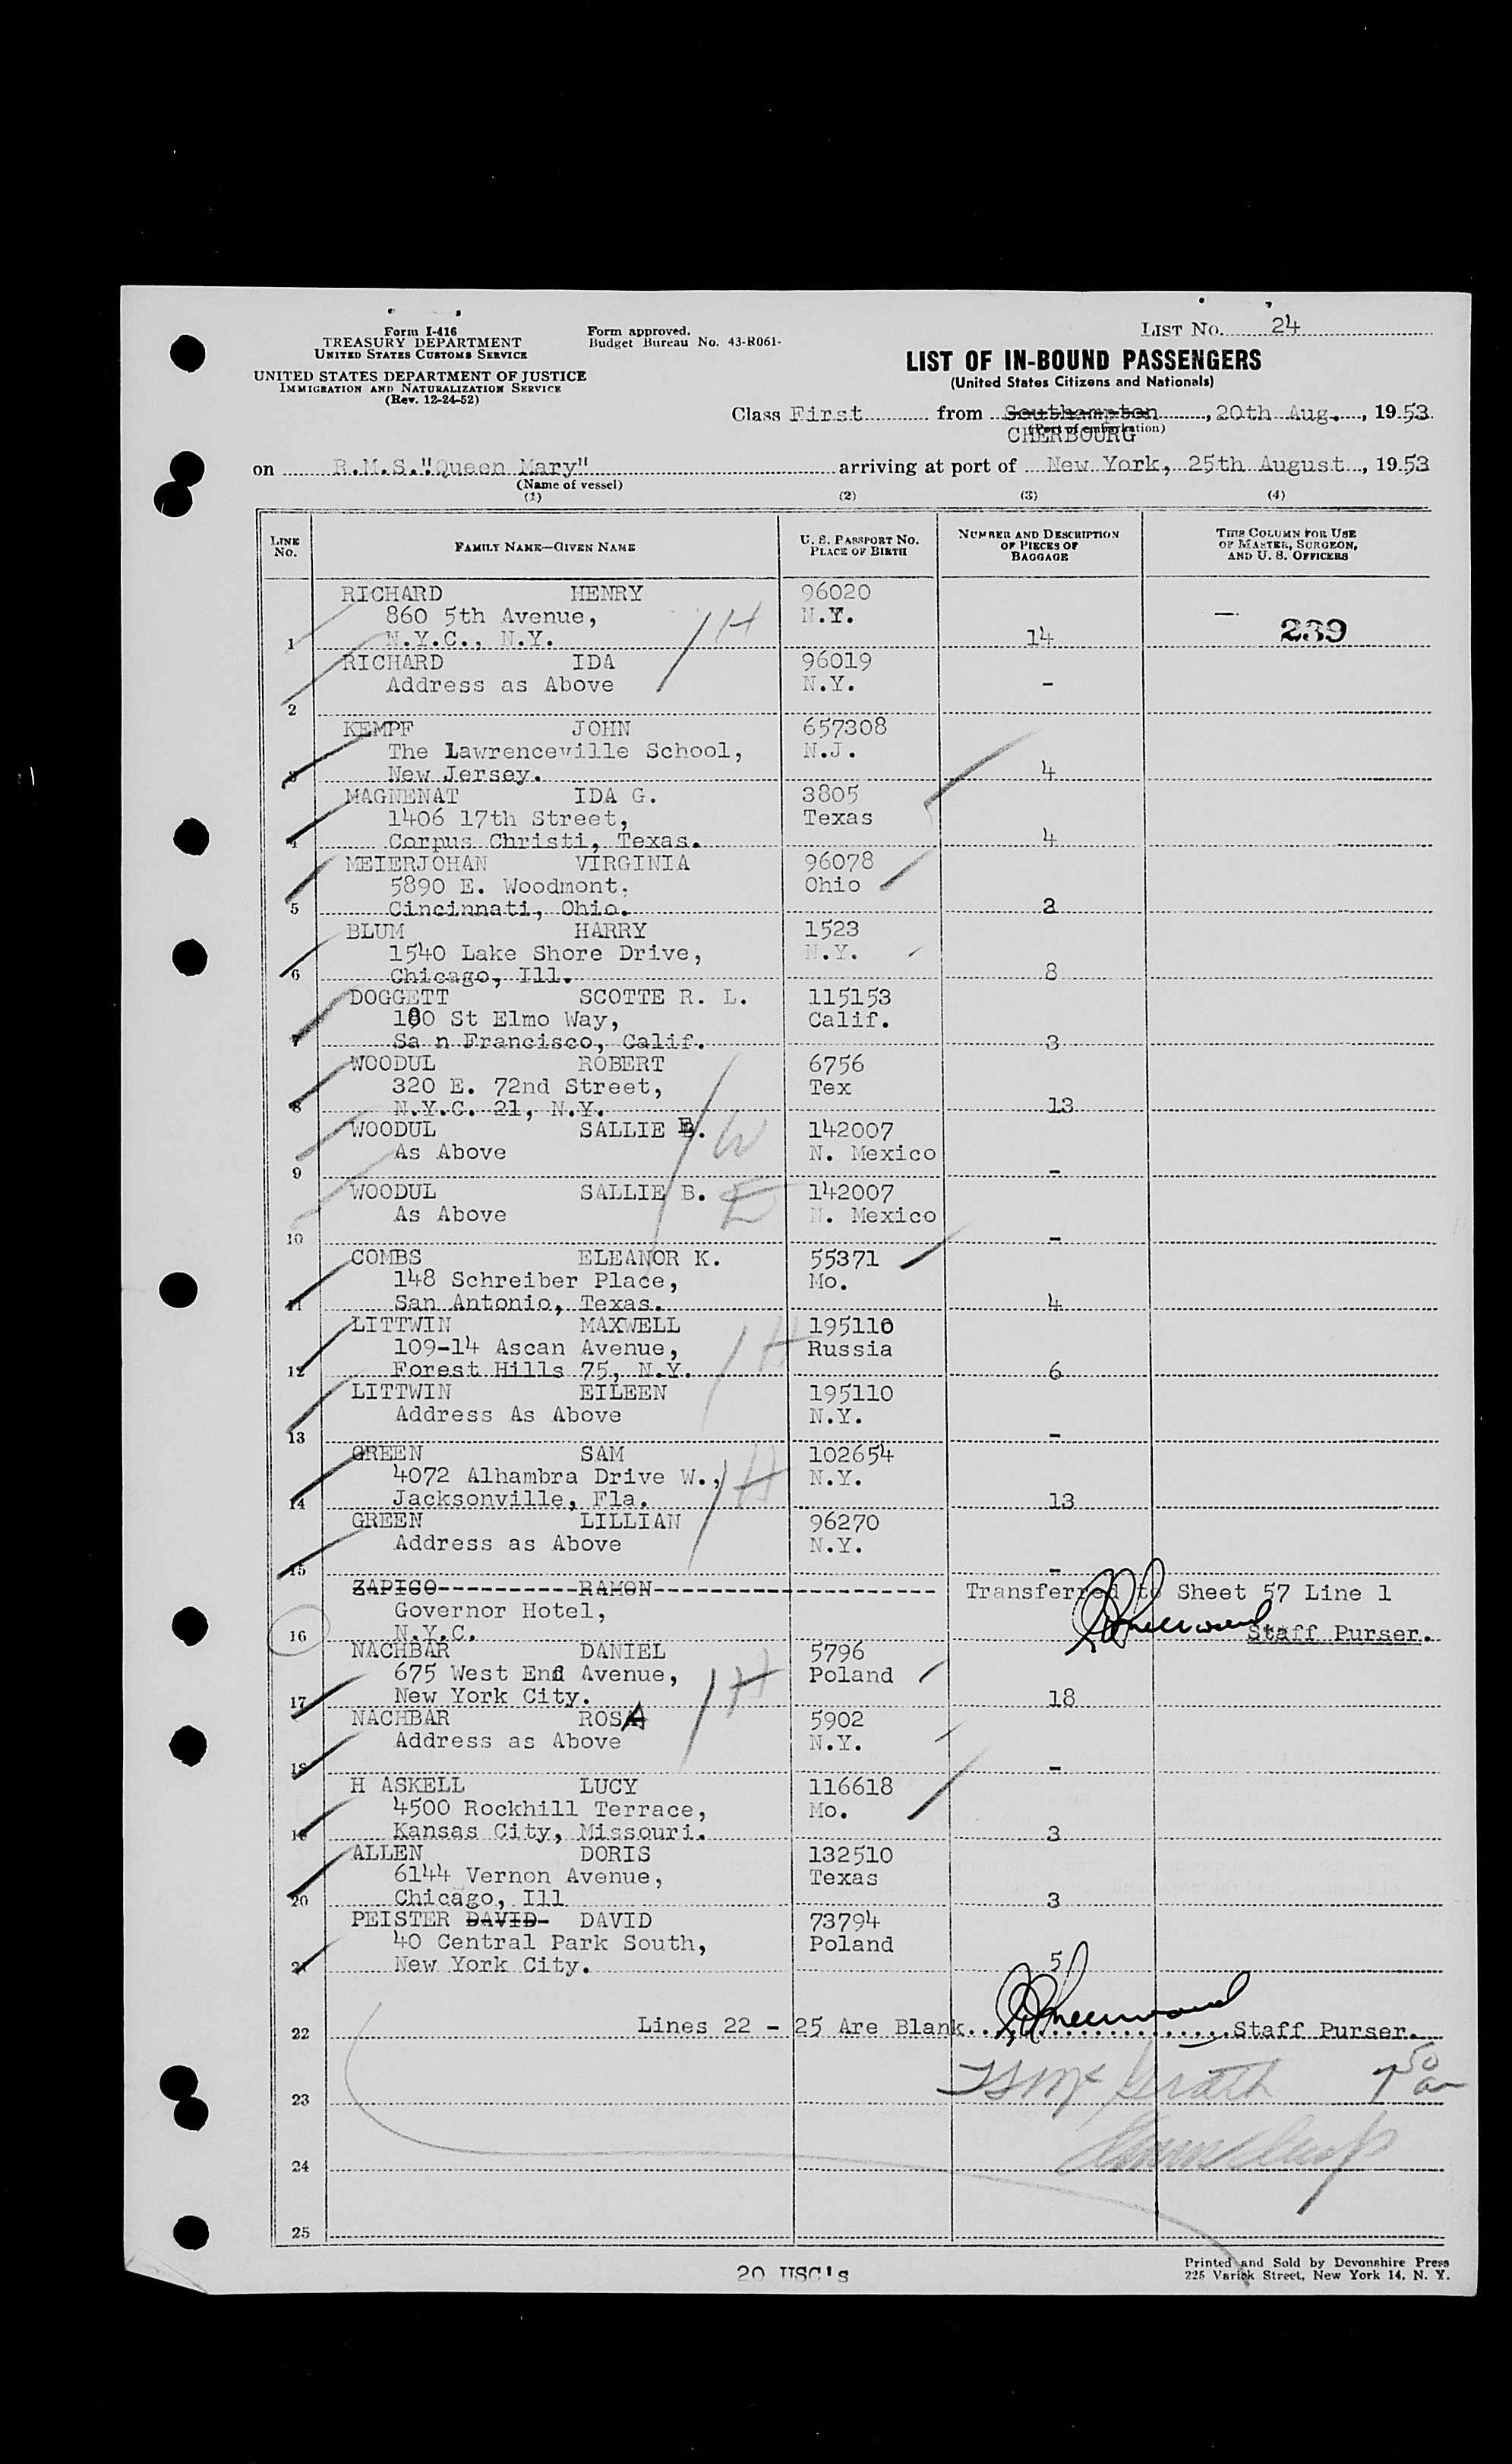 Form I-416
TREASURY DEPARTMENT
UNITED STATES CUSTOMS SERVICE
UNITED STATES DEPARTMENT OF JUSTICE
IMMIGRATION AND NATURALIZATION SERVICE
(Rev. 12-24-52)
Form approved.
Budget Bureau No. 43-R061-
LIST No. 24
LIST OF IN-BOUND PASSENGERS
(United States Citizens and Nationals)
Class First from Southampton, 20th Aug., 1953
(Port of embarkation)
CHERBOURG
on R.M.S."Queen Mary" arriving at port of New York, 25th August, 1953
(Name of vessel)
(1) (2) (3) (4)
LINE No. FAMILY NAME—GIVEN NAME U. S. PASSPORT NO. PLACE OF BIRTH NUMBER AND DESCRIPTION OF PIECES OF BAGGAGE THIS COLUMN FOR USE OF MASTER, SURGEON, AND U. S. OFFICERS
RICHARD HENRY 96020
860 5th Avenue, N.Y.
1 N.Y.C., N.Y. 14 — 239
H
RICHARD IDA 96019
Address as Above N.Y. -
2
KEMPF JOHN 657308
The Lawrenceville School, N.J.
3 New Jersey. 4
MAGNENAT IDA G. 3805
1406 17th Street, Texas
4 Corpus Christi, Texas. 4
MEIERJOHAN VIRGINIA 96078
5890 E. Woodmont, Ohio
5 Cincinnati, Ohio. 3
BLUM HARRY 1523
1540 Lake Shore Drive, N.Y.
6 Chicago, Ill. 8
DOGGETT SCOTTE R. L. 115153
100 St Elmo Way, Calif.
7 Sa n Francisco, Calif. 3
WOODUL ROBERT 6756
320 E. 72nd Street, Tex
8 N.Y.C. 21, N.Y. 13
WOODUL SALLIE B. 142007
As Above W N. Mexico
9 -
WOODUL SALLIE B. 142007
As Above N. Mexico
10 -
COMBS ELEANOR K. 55371
148 Schreiber Place, Mo.
11 San Antonio, Texas. 4
LITTWIN MAXWELL 195110
109-14 Ascan Avenue, H Russia
12 Forest Hills 75, N.Y. 6
LITTWIN EILEEN 195110
Address As Above N.Y.
13 -
GREEN SAM 102654
4072 Alhambra Drive W., H N.Y.
14 Jacksonville, Fla. 13
GREEN LILLIAN 96270
Address as Above N.Y.
15 -
ZAPICO-----------RAMON---------------------- Transferred to Sheet 57 Line 1
Governor Hotel,
16 N.Y.C. Staff Purser.
NACHBAR DANIEL 5796
675 West End Avenue, H Poland
17 New York City. 18
NACHBAR ROSA 5902
Address as Above N.Y.
18 -
H ASKELL LUCY 116618
4500 Rockhill Terrace, Mo.
19 Kansas City, Missouri. 3
ALLEN DORIS 132510
6144 Vernon Avenue, Texas
20 Chicago, Ill 3
PEISTER DAVID- DAVID 73794
40 Central Park South, Poland
21 New York City. 5
22 Lines 22 - 25 Are Blank. Greenwood Staff Purser.
23
24
25
20 USC's
Printed and Sold by Devonshire Press
225 Varick Street, New York 14, N. Y.